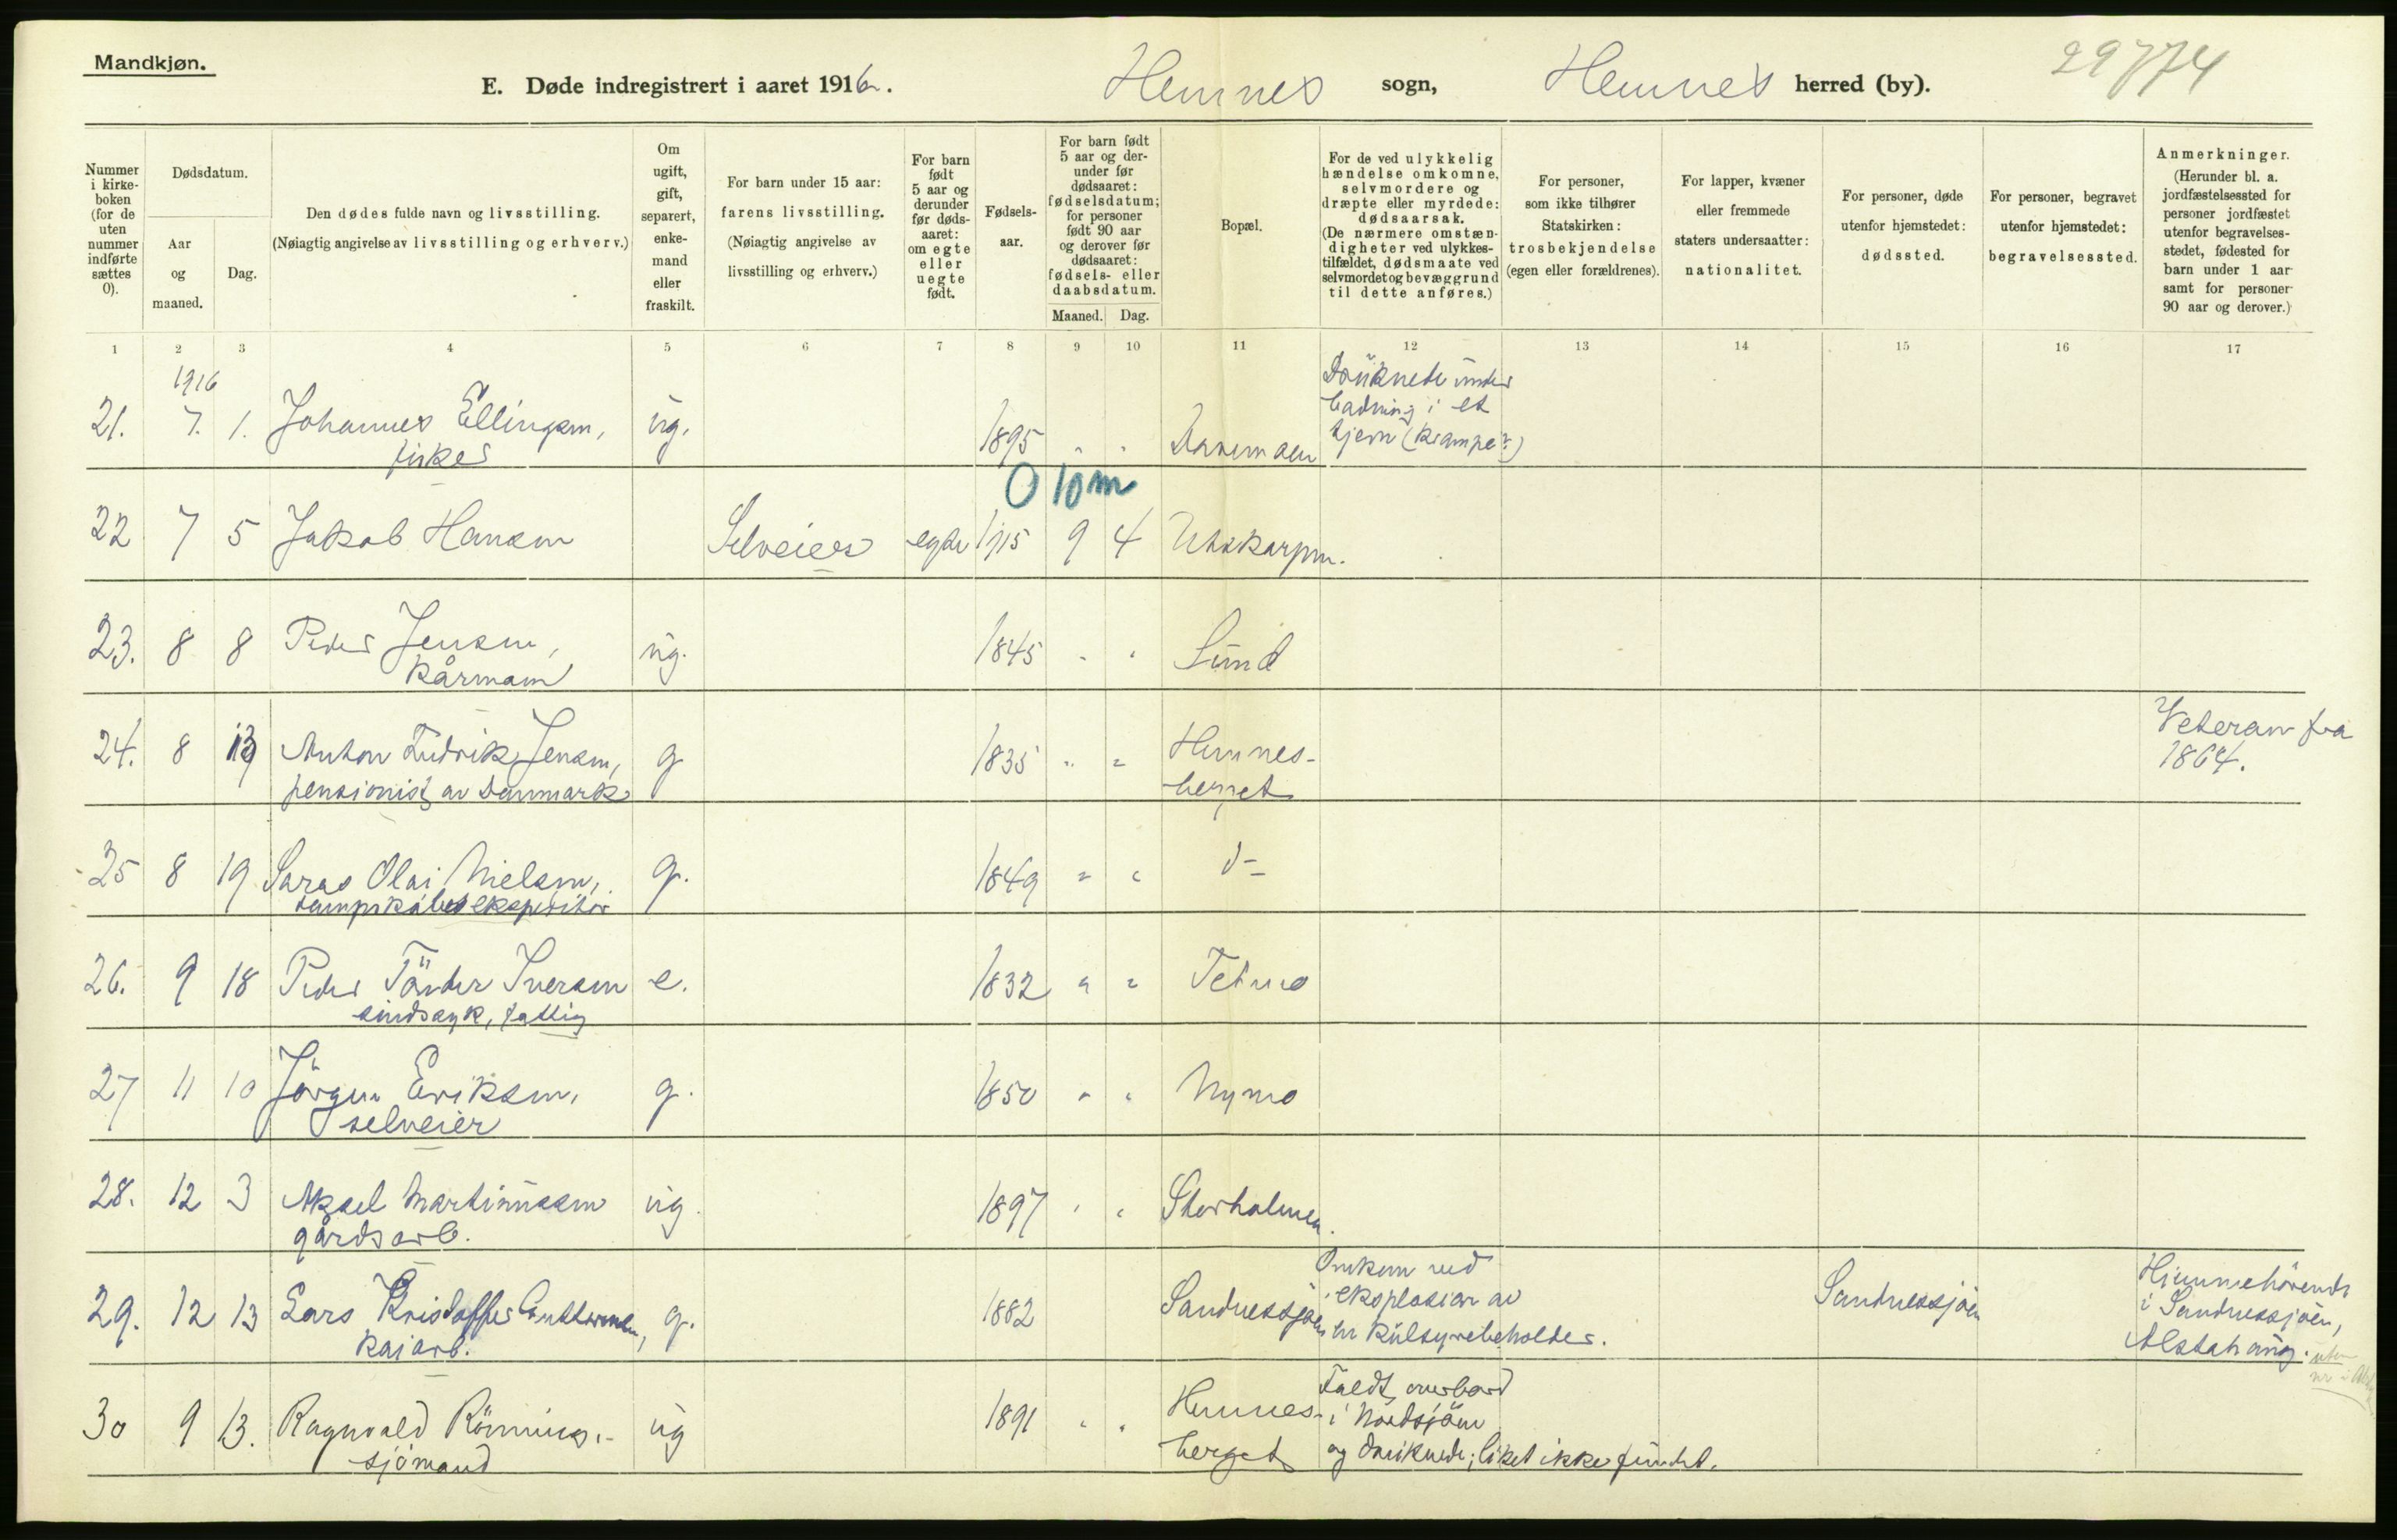 Mandkjøn.
E. Døde indregistrert i aaret 1916. Hemnes sogn, Hemnes herred (by). 29774
Nummer i kirke-boken (for de uten nummer indførte sættes 0).
Dødsdatum.
Aar og maaned.
Dag.
Den dødes fulde navn og livsstilling.
(Nøiagtig angivelse av livsstilling og erhverv.)
Om ugift, gift, separert, enke-mand eller fraskilt.
For barn under 15 aar:
farens livsstilling.
(Nøiagtig angivelse av
livsstilling og erhverv.)
For barn født 5 aar og derunder før døds-aaret: om egte eller uegte født.
Fødsels-aar.
For barn født 5 aar og der-under før dødsaaret: fødselsdatum; for personer født 90 aar og derover før dødsaaret: fødsels- eller daabsdatum.
Maaned. Dag.
Bopæl.
For de ved ulykkelig hændelse omkomne, selvmordere og dræpte eller myrdede: dødsaarsak.
(De nærmere omstæn-digheter ved ulykkes-tilfældet, dødsmaate ved selvmordet og bevæggrund til dette anføres.)
For personer, som ikke tilhører Statskirken: trosbekjendelse (egen eller forældrenes).
For lapper, kvæner eller fremmede staters undersaatter: nationalitet.
For personer, døde utenfor hjemstedet: dødssted.
For personer, begravet utenfor hjemstedet: begravelsessted.
Anmerkninger.
(Herunder bl. a. jordfæstelsessted for personer jordfæstet utenfor begravelses-stedet, fødested for barn under 1 aar samt for personer 90 aar og derover.)
1 2 3 4 5 6 7 8 9 10 11 12 13 14 15 16 17
1916
21. 7. 1. Johannes Ellingsen, ug. 1895 " "
fisker
Druknede under
badning i et
tjern (krampe?)
0 10 m
22 7 5 Jakob Hansen Selveier egte 1915 9 4
23. 8 8 Peder Jensen, ug. 1845 " " Lund
kårmann
24. 8 13 Anton Ludvik Jensen, g 1835 " " Hemnes-
pensionist av Danmark berget
Veteran fra
1864.
25 8 19 Olai Nielsen, g. 1849 " " d-
dampskibsekspeditör
26. 9 18 Peder Tönder Iversen e. 1832 " " Tetmo
sindssyk, fattig
27 11 10 Jörgen Eriksen, g. 1850 " " Nymo
selveier
28. 12 3 Aksel Martinussen ug. 1897 " " Storholmen.
gårdsarb.
29. 12 13 Lars Kristoffer g. 1882 Sandnessjøen
kaiarb.
Omkom ved
eksplosion av
en kulsyrebeholder.
Sandnessjøen
Hjemmehörende
i Sandnessjøen,
Alstahaug.
30 9 13. Ragnvald Rönning, ug 1891 " " Hemnes-
sjömand berget
Faldt overbord
i Nordsjöen
og druknede; liket ikke fundet.